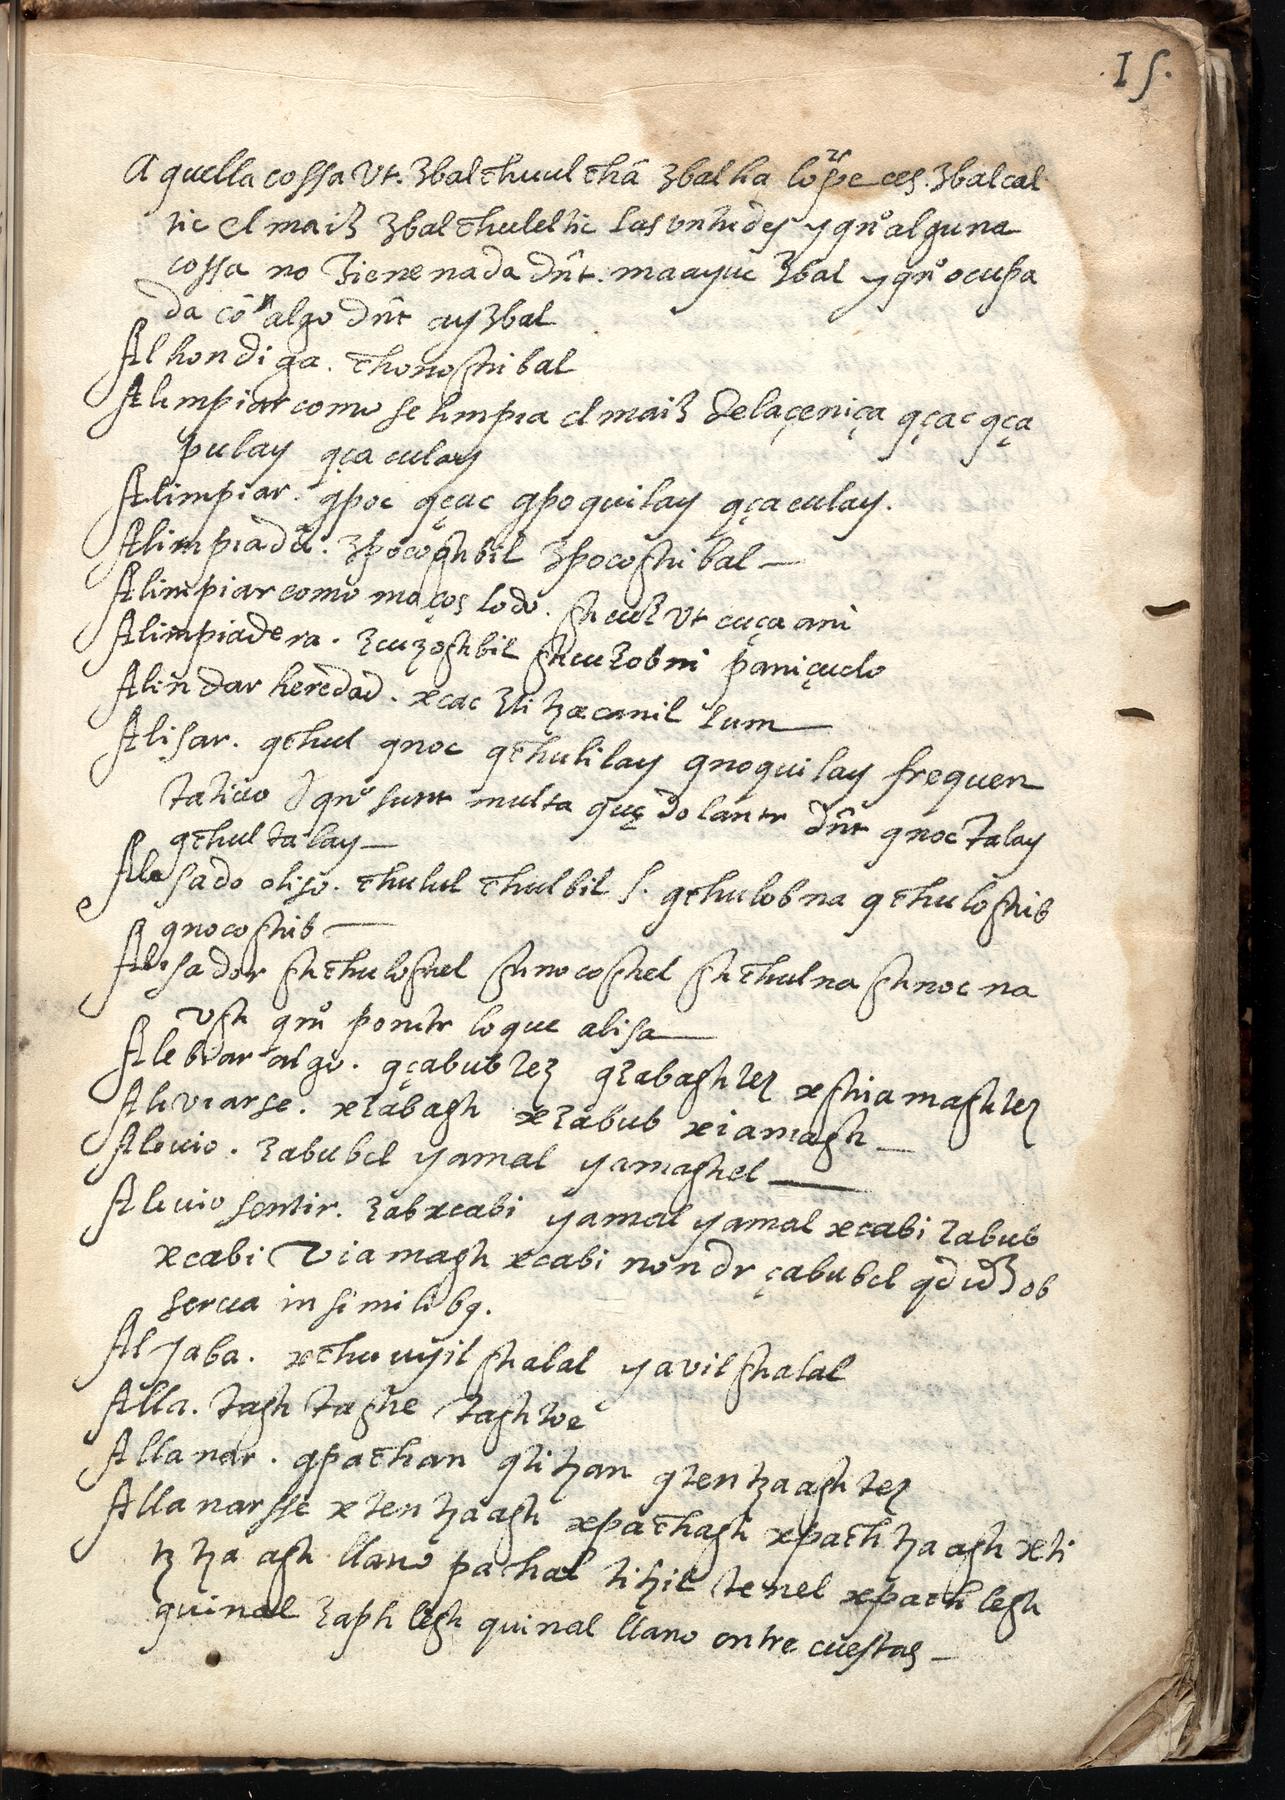 .15.
A quella cossa vt. ʒbal c̄huul c̄hã ʒbal ha lo pe ces. ʒbal cal
tic el maiʒ ʒbal c̄huleltic las vntudes y qnͦ alguna
cossa no tiene nada dñt. maayuc ʒbal y qnͦ ocupa
da cõ algo dñt ay ʒbal
Alhondiga. c̄honoghibal
Alimpiar como se limpia el maiʒ de la çeniça qçac qça
pulay qçaculay
Alimpiar. qpoc qçac qpoquilay qçaculay.
Alimpiada. ʒpocoghbil ʒpocoghibal —
Alimpiar como moços lodo. ghcuʒ vt cuça ani
Alimpiadera. ʒcuʒoghbil ghcuʒobni paniçuelo
Aliñdar heredad. xcac ʒti tzæcanil lum —
Alisar. qc̄hul qnoc qc̄hulilay qnoquilay frequen
tatiuo & qnͦ sunt multa quę dolantr dñt qnoctalay
qc̄hultalay —
Alisado oliso. c̄hulul c̄hulbil s. qc̄hulobna qc̄huloghib
qnocoghib —
Alisador ghc̄huloghel ghnocoghel ghc̄hulna ghnoc na
vgh qnͦ ponitr lo que alisa —
Alebiar algo. qçabubteʒ qʒabaghteʒ xghiamaghteʒ
Aliviarse. xʒabagh xʒabub xiamagh —
Alevio. ʒabubel yamal yamaghel —
Alivio sentir. ʒabxcabi yamal yamal xcabi ʒabub
xcabi viamagh xcabi non dr çabubel qd ob
serua in similibꝫ.
Aljaba. xc̄huuyil ghalal yavil ghalal
Alla. tagh taghe taghtoe
Allanar. qpac̄han qtitzan qtentzaaghteʒ
Allanarsse xtentzaagh xpac̄hagh xpac̄htzaagh xti
tz tzaagh llano pachal titzil tenel xpac̄h legh
quinal ʒaph legh quinal llano entre cuestas —